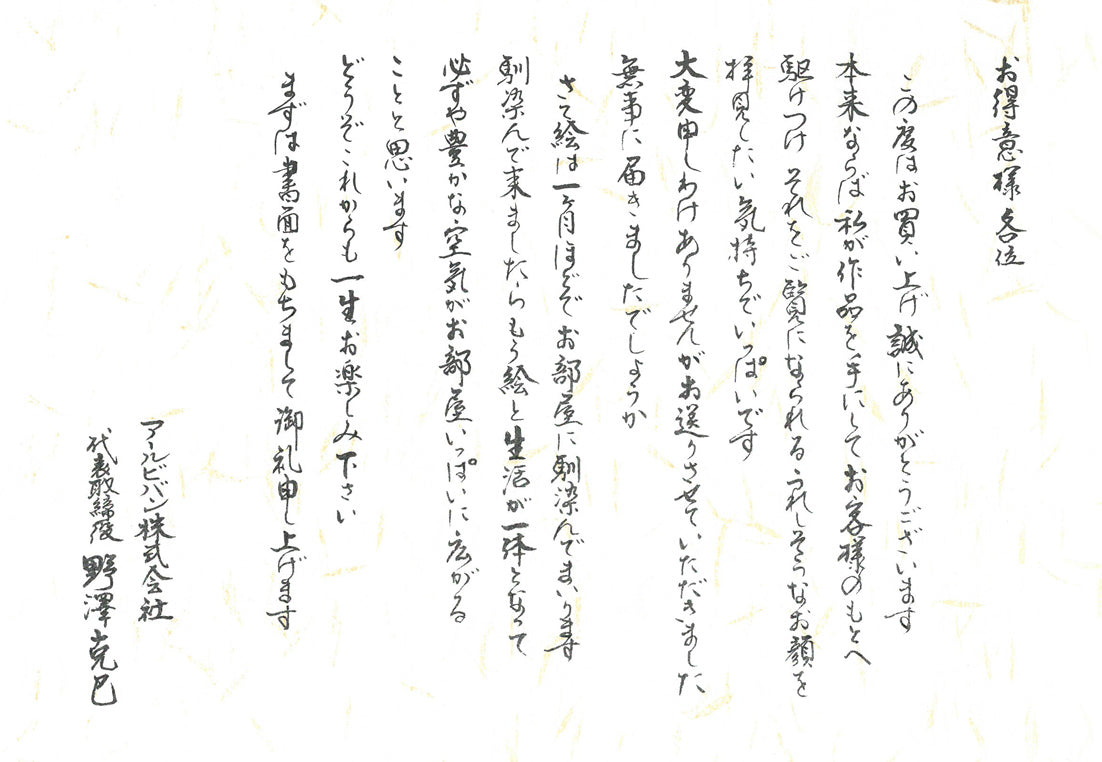 お得意様各位
この度はお買い上げ誠にありがとうございます
本来ならば私が作品を手にしてお客様のもとへ
駆けつけそれをご覧になられるうれしそうなお顔を
拝見したい気持ちでいっぱいです
大変申しわけありませんがお送りさせていただきました
無事に届きましたでしょうか
さて絵は一ヶ月ほどでお部屋に馴染んでまいります
馴染んで来ましたらもう絵と生活が一体となって
必ずや豊かな空気がお部屋いっぱいに広がる
ことと思います
どうぞこれからも一生お楽しみ下さい
まずは書面をもちまして御礼申し上げます
アールビバン株式会社
代表取締役 野澤克巳